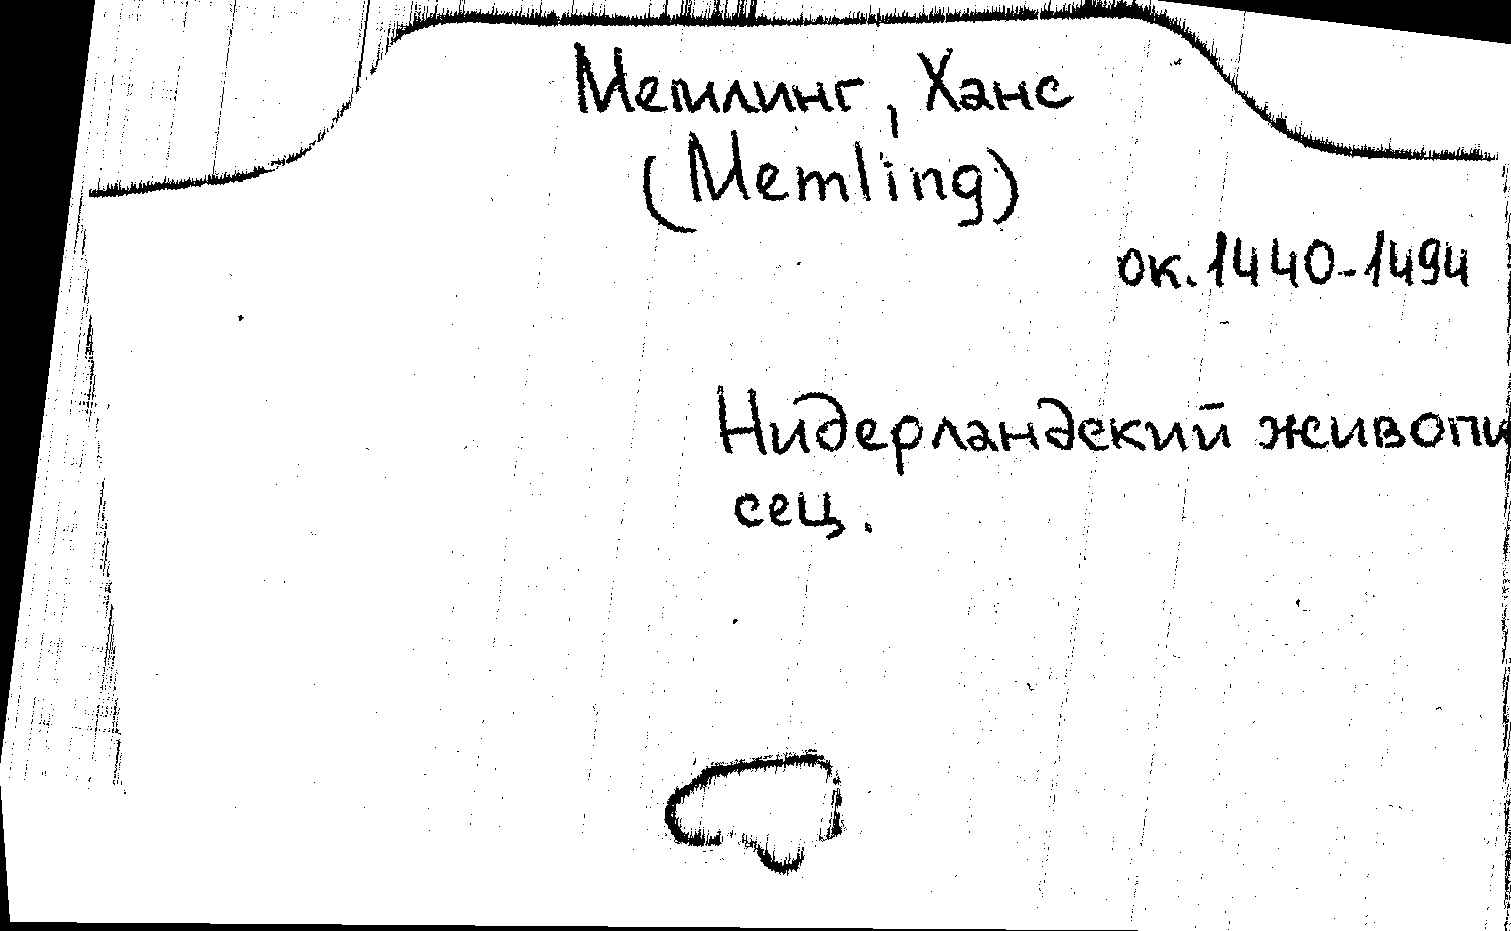 Мемлинг, Ханс
(Memling)
ок. 1440-1494
Нидерландский живопи
сец.